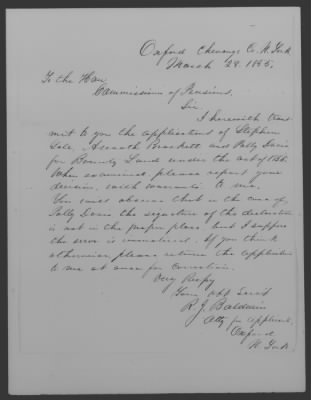 Oxford Chenango Co. N. York
March 29. 1855.
To the Hon.
Commissioner of Pensions.
Sir.
I herewith trans
mit to you the applications of Stephen
Cole, Asenath Brackett and Polly Davis
for Bounty Land under the act of 1855.
When examined please report your
decision, with warrants to me.
You will observe that in the case of
Polly Davis the signature of the declaration
is not in the proper place, but I suppose
the error is immaterial. If you think
otherwise please return the application
to me at once for correction.
Very Respy
Your Servt
R. J. Baldwin
Atty for applicants
Oxford
N. York.